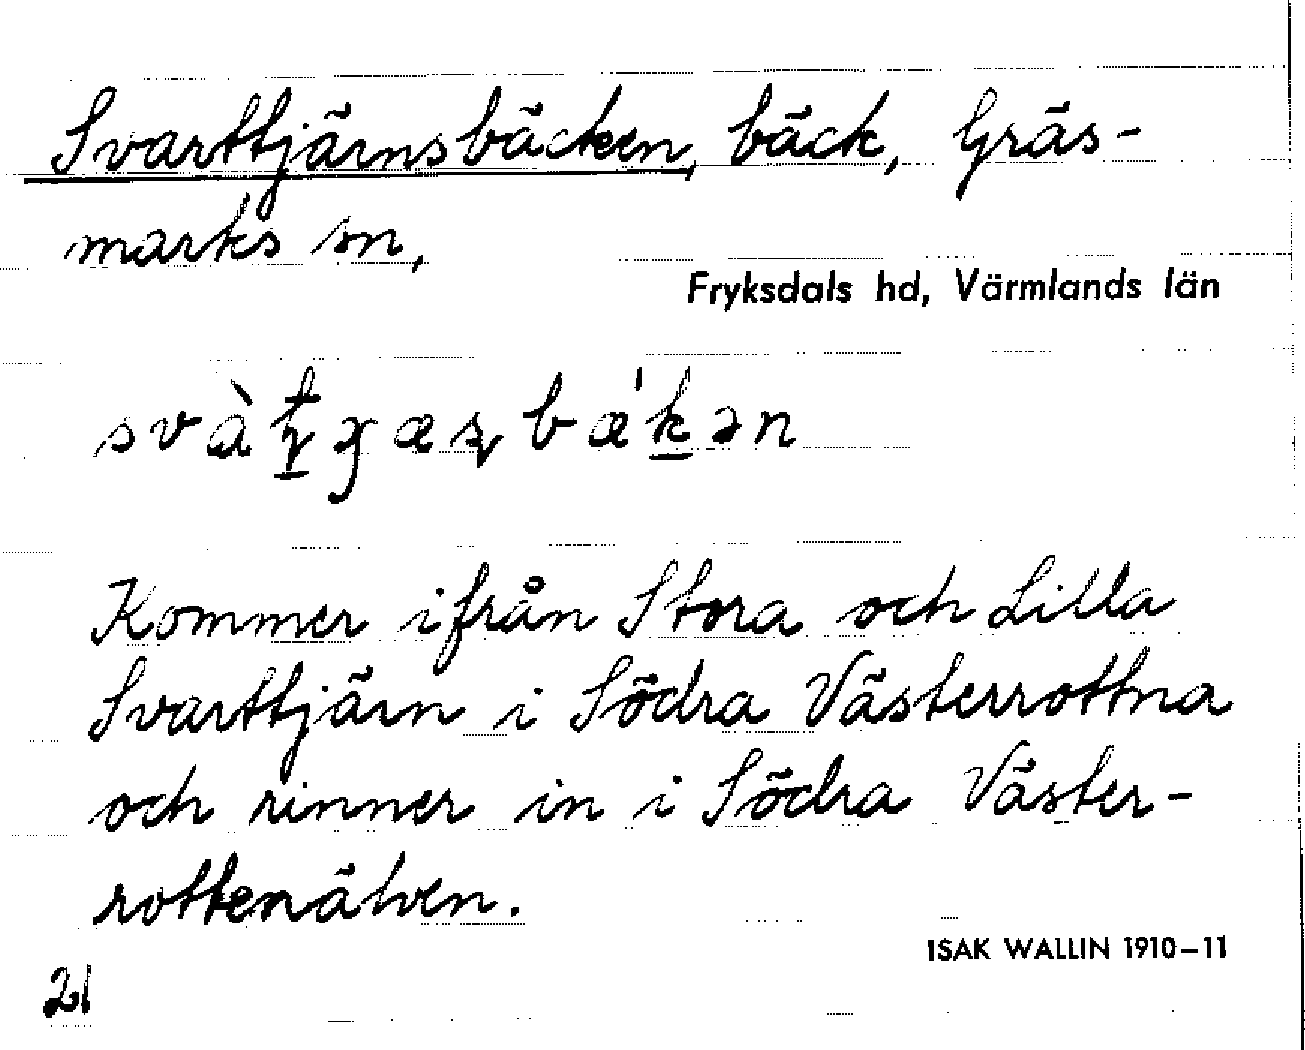 Svarttjärnsbäcken, bäck, Gräs-
marks sn,
Fryksdals hd, Värmlands län
Kommer ifrån Stora och Lilla
Svarttjärn i Södra Västerrottna
och rinner in i Södra Väster-
rottenälven.
ISAK WALLIN 1910-11
21